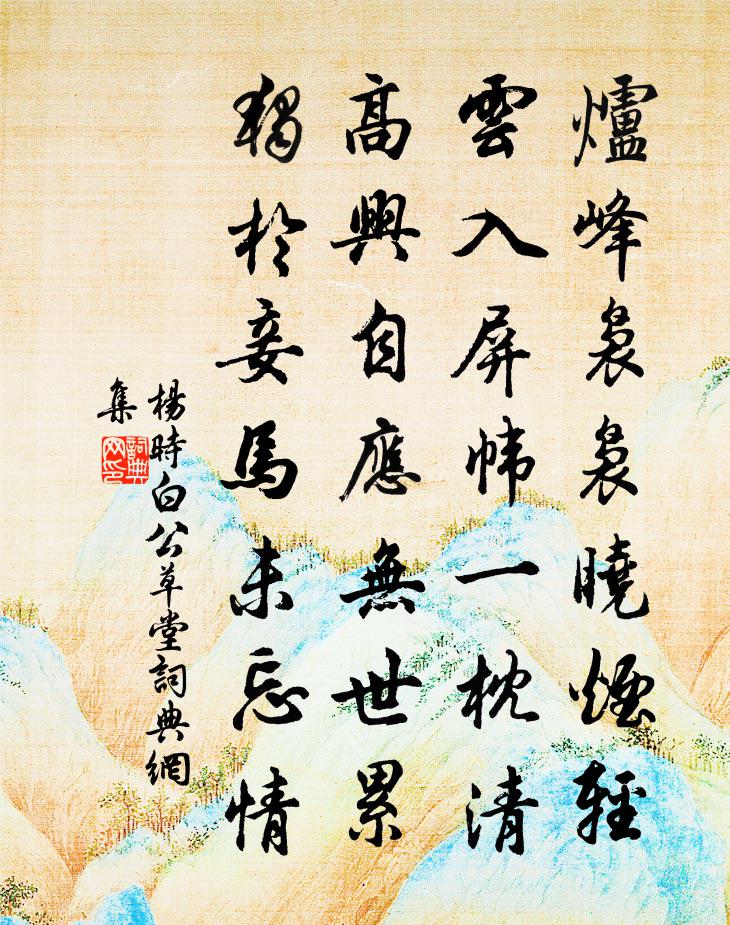 爐峰裊裊曉煙輕
雲入屏幃一枕清
高興自應無世累
獨於妾馬未忘情
楊時白公草堂詞典網
集
詞典
网印